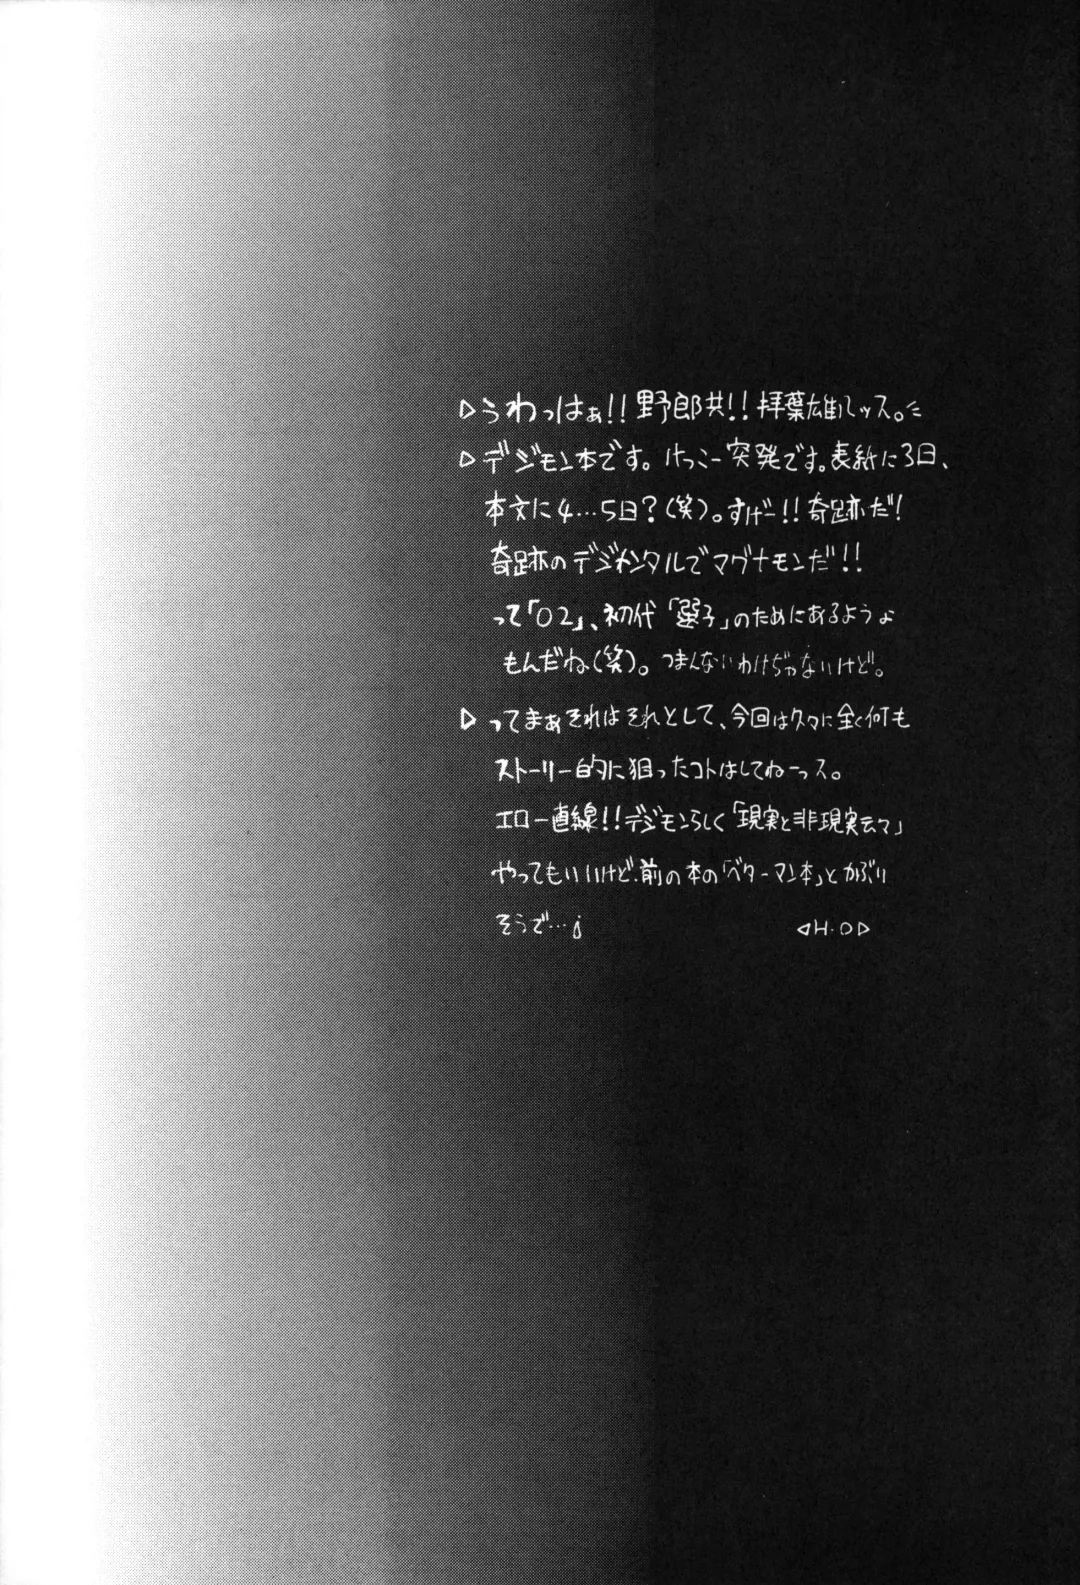 ▷うわっはぁ!!野郎共!!拝葉雄レッス。
▷デジモン本です。けっこー突発です。表紙に3日、
本文に4…5日?(笑)。すげー!!奇跡だ!
奇跡のデジメンタルでマグナモンだ!!
って「02」、初代「選子」のためにあるようょ
もんだね(笑)。つまんないわけぢゃないけど。
▷ってまぁそれはそれとして、今回は久々に全く何も
ストーリー的に狙ったコトはしてねーっス。
エロ一直線!!デジモンらしく「現実と非現実云々」
やってもいいけど、前の本の「ベターマン本」とかぶり
そうで…
◁H・O▷